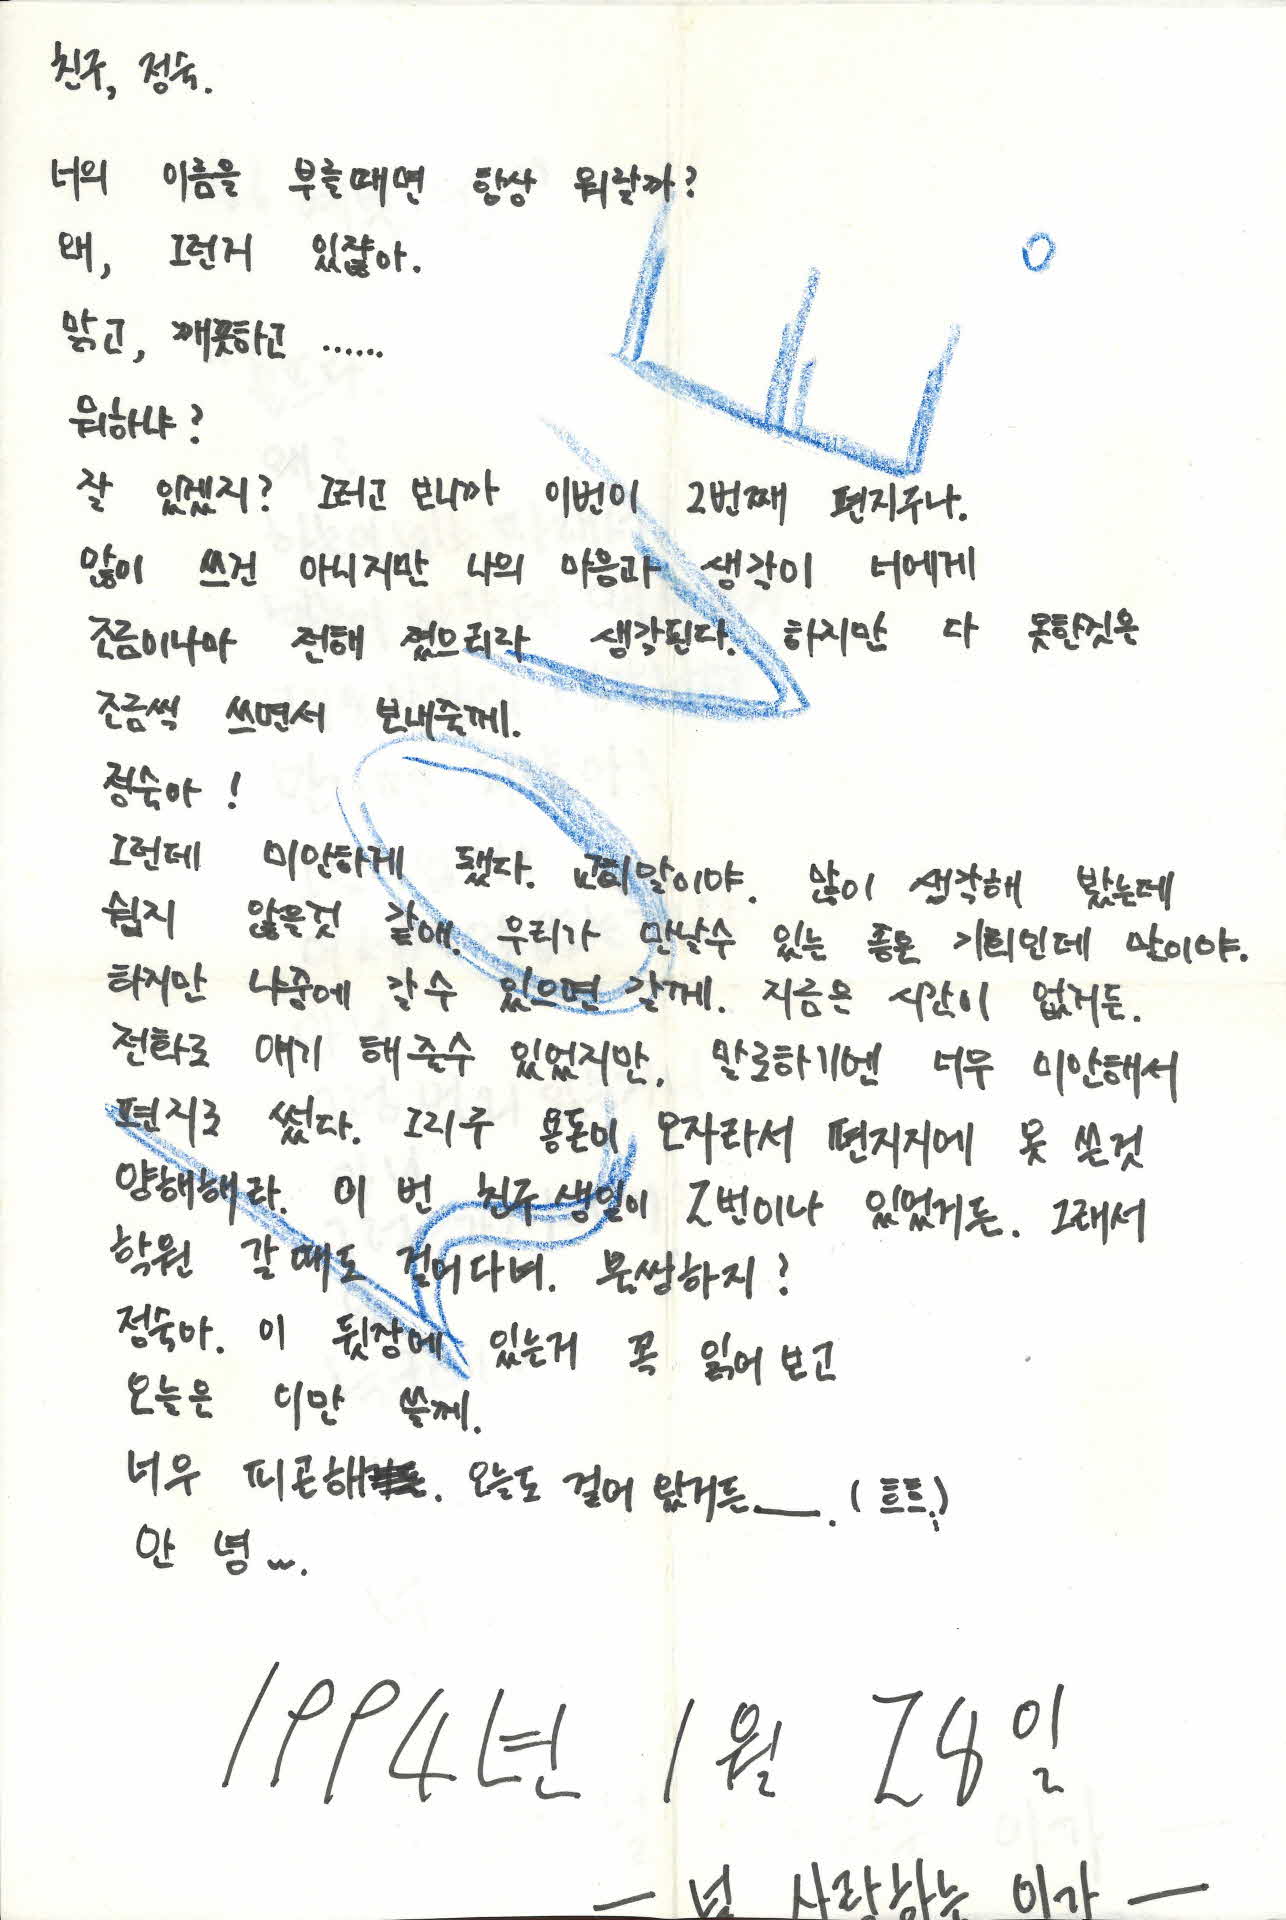 친구, 정숙.
너의 이름을 부를때면 항상 뭐랄까?
왜, 그런거 있잖아.
맑고, 깨끗하고 ......
뭐하냐?
잘 있겠지? 그러고 보니까 이번이 2번째 편지구나.
많이 쓰건 아니지만 나의 마음과 생각이 너에게
조금이나마 전해 졌으리라 생각된다. 하지만 다 못한것은
조금씩 쓰면서 보내줄께.
정숙아 !
그런데 미안하게 됐다. 교회말이야. 많이 생각해 봤는데
쉽지 않을것 같애. 우리가 만날수 있는 좋은 기회인데 말이야.
하지만 나중에 갈수 있으면 갈께. 지금은 시간이 없거든.
전화로 얘기 해 줄수 있었지만, 말로하기엔 너무 미안해서
편지로 썼다. 그리구 용돈이 모자라서 편지지에 못 쓴것
양해해라. 이 번 친구생일이 2번이나 있었거든. 그래서
학원 갈때도 걸어다녀. 불쌍하지?
정숙아. 이 뒷장에 있는거 꼭 읽어 보고
오늘은 이만 쓸께.
너무 피곤해. 오늘도 걸어 왔거든__. (흐흐;)
안 녕....
1994년 1월 28일
— 널 사랑하는 이가 —
LOVE